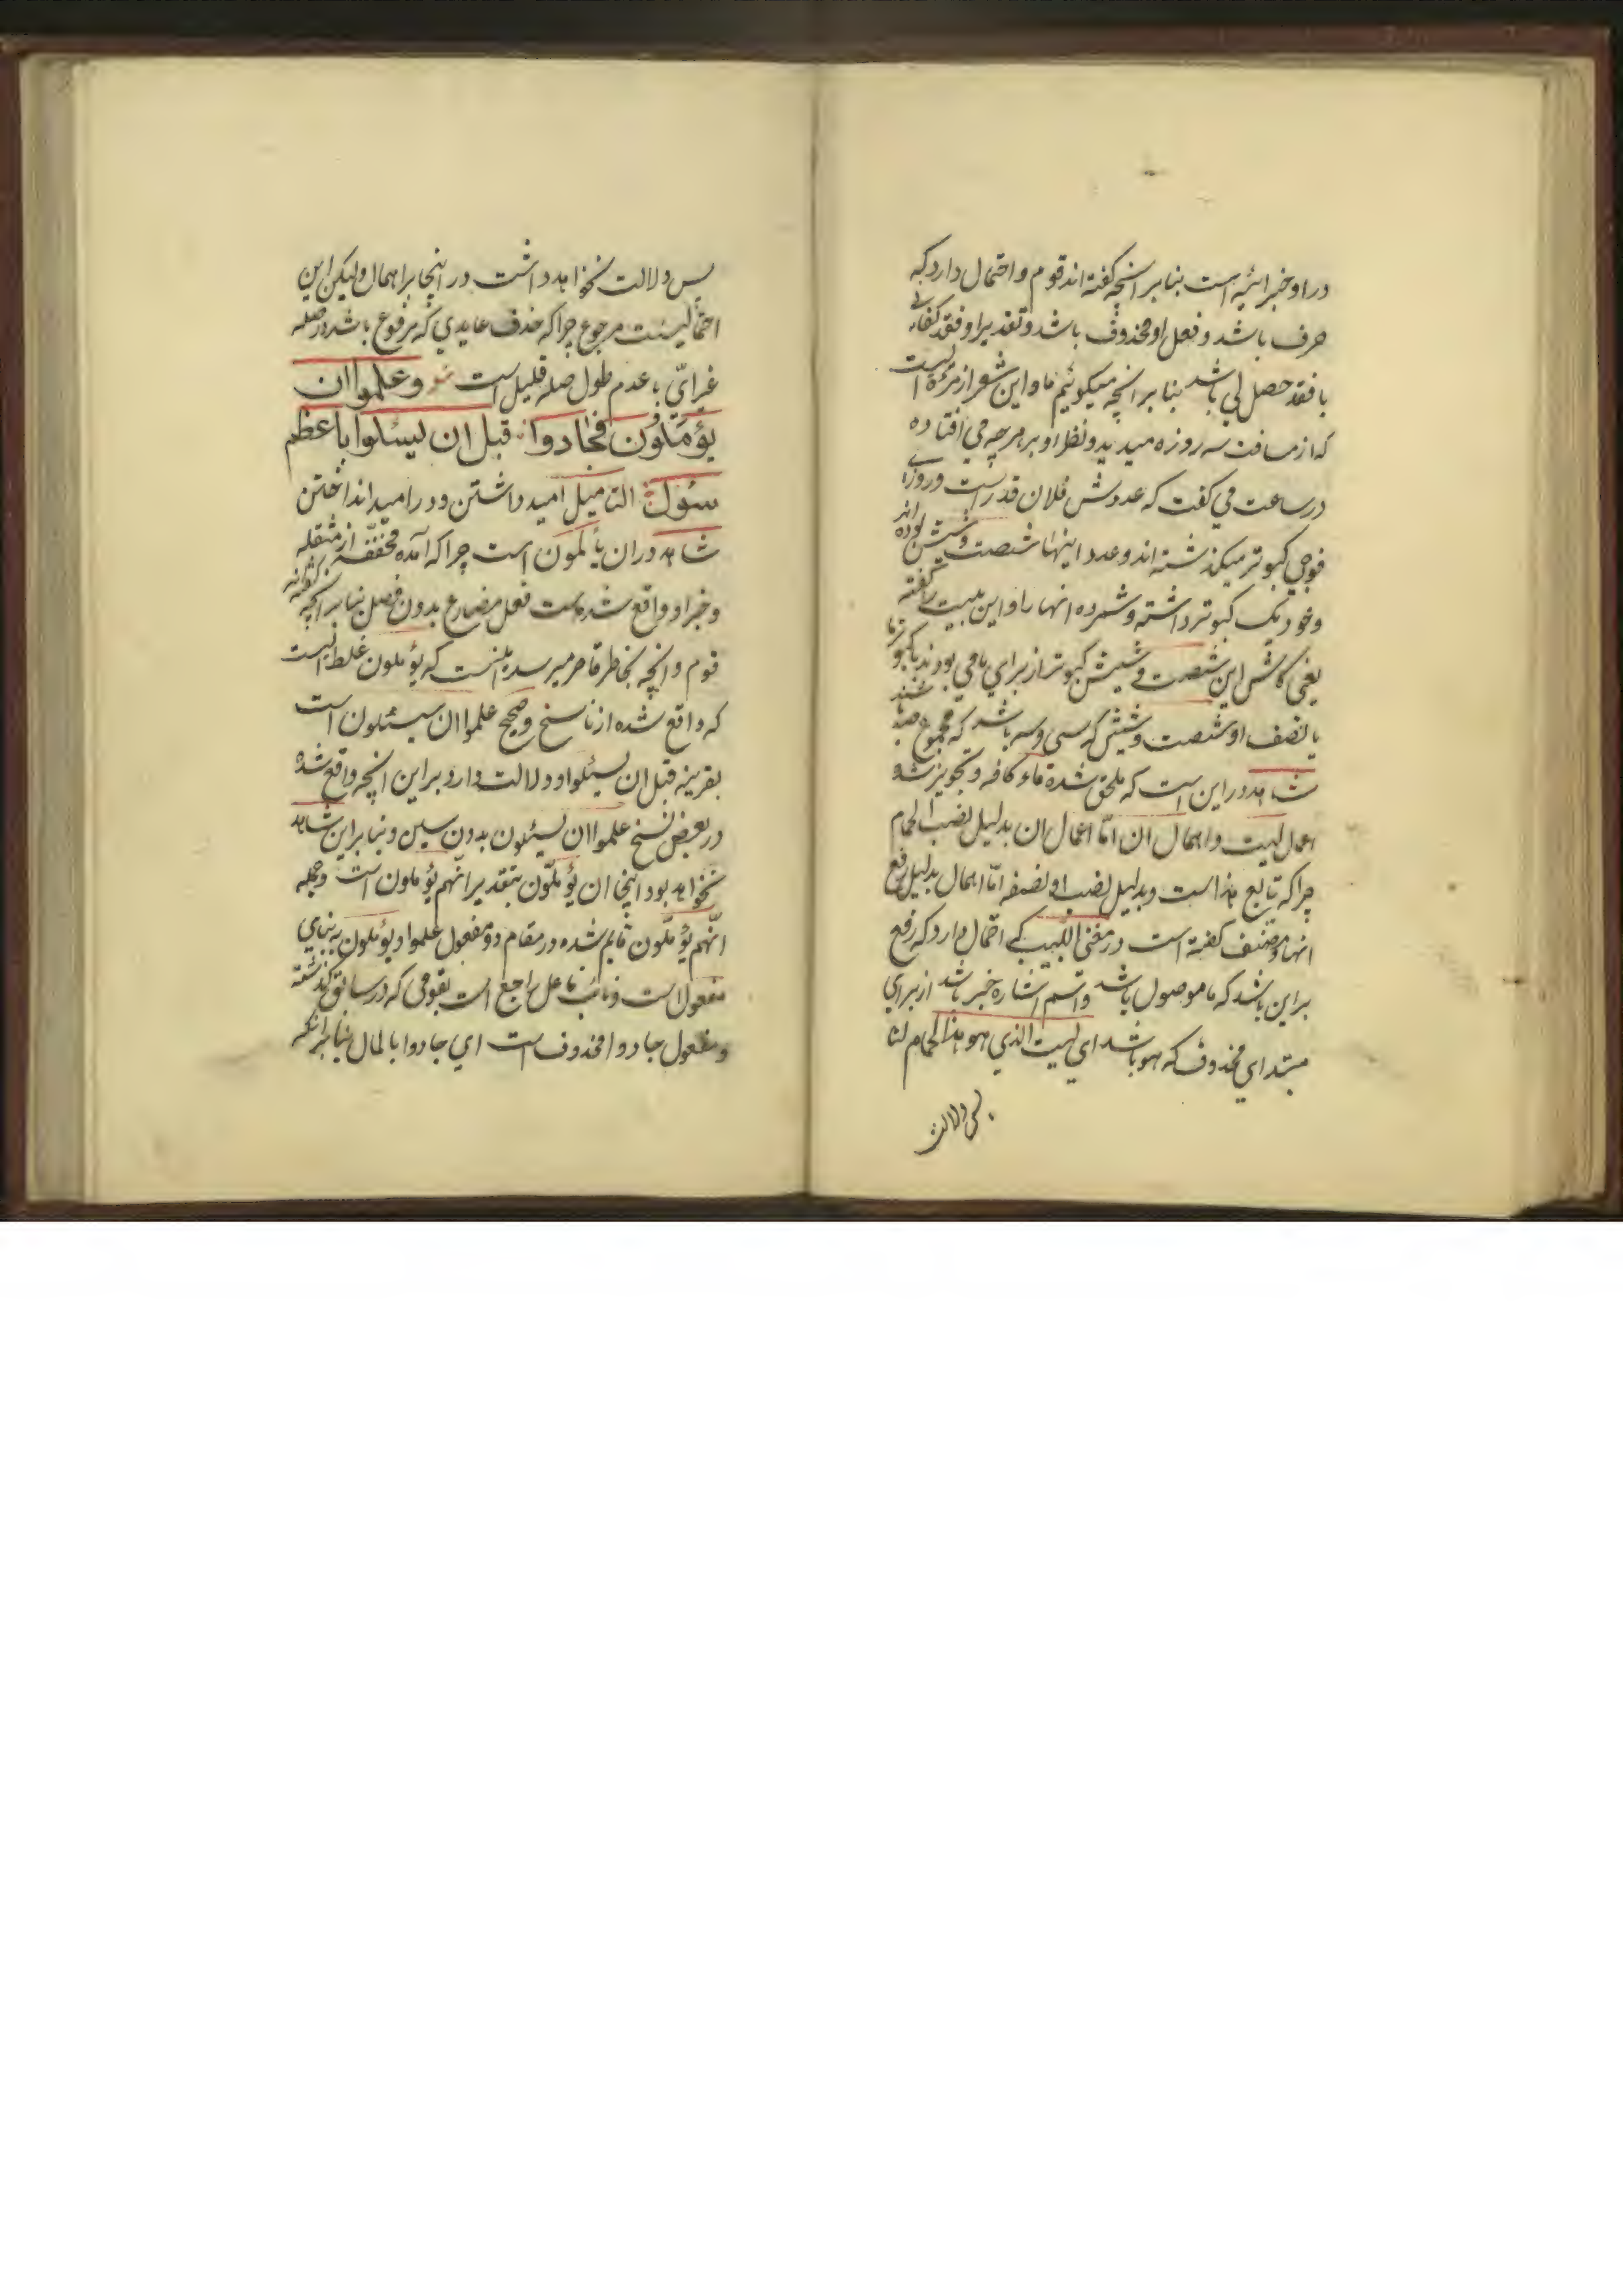 در او خبرائیه است بنابر انچه گفته اند قوم و احتمال دارد که
حرف باشد و فعل او محذوف باشد و تقدیر او فقد کفانی
یا فقد حصل لی باشد بنابر انچه میگوئیم ما و این شعر از مرءه ایست
که از مسافت سه روزه میدید و نظر او بر هرچه می افتاده
در ساعت می گفت که عددش فلان قدر است و روزی
فوجی کبوتر میگذشته اند و عدد اینها شصت و شش بوده اند
و خود یک کبوتر داشته و شمرده انها را و این بیت را گفته
یعنی کاش این شصت و شش کبوتر از برای ما می بودند با کبوتر ما
با نصف او شصت و شش که سی و سه باشد که مجموع صد باشند
شاهد در این است که ملحق شده ماء کافه و تجویز شده
اعمال لیت و اهمال ان امّا اعمال ان بدلیل نصب الحمام
چراکه تابع هذا است و بدلیل نصب او نصفه امّا اهمال بدلیل رفع
انها و مصنف گفته است در مغنی اللبیب که احتمال دارد که رفع
براین باشد که ما موصول باشد و اسم اشاره خبر باشد از برای
مبتدای محذوف که هو باشد ای لیت الذی هو هذا الحمام لنا
پس دلالت
پس دلالت نخواهد داشت در اینجا بر اهمال ولیکن این
احتمالیست مرجوع چراکه حذف عایدی که مرفوع باشد در صله
غیر ایّ با عدم طول صله قلیل است شو وعلموا ان
یؤمّلون فجادوا قبل ان یسئلوا باعظم
سؤل التامیل امید داشتن و در امید انداختن
شاهد در ان یأملون است چراکه آمده مخففه از مثقله
و خبر او واقع شده است فعل مضارع بدون فصل بنابر انچه گفته اند
قوم و انچه بخاطر قاصر میرسد اینست که یؤملون غلط ایست
که واقع شده از ناسخ و صحیح علموا ان سیسئلون است
بقرینه قبل ان یسئلوا و دلالت دارد بر این انچه واقع شده
در بعض نسخ علموا ان یسئلون بدون سین و بنابراین شاهد
نخواهد بود اینجا ان یؤمّلون بتقدیر انّهم یؤملون است و جمله
انّهم یؤمّلون قایم شده در مقام دو مفعول علموا و یؤملون به بنای
مفعول است و نائب فاعل راجع است بقومی که در سابق گذشته
و مفعول جادوا محذوف است ای جادوا بالمال بنابر انکه